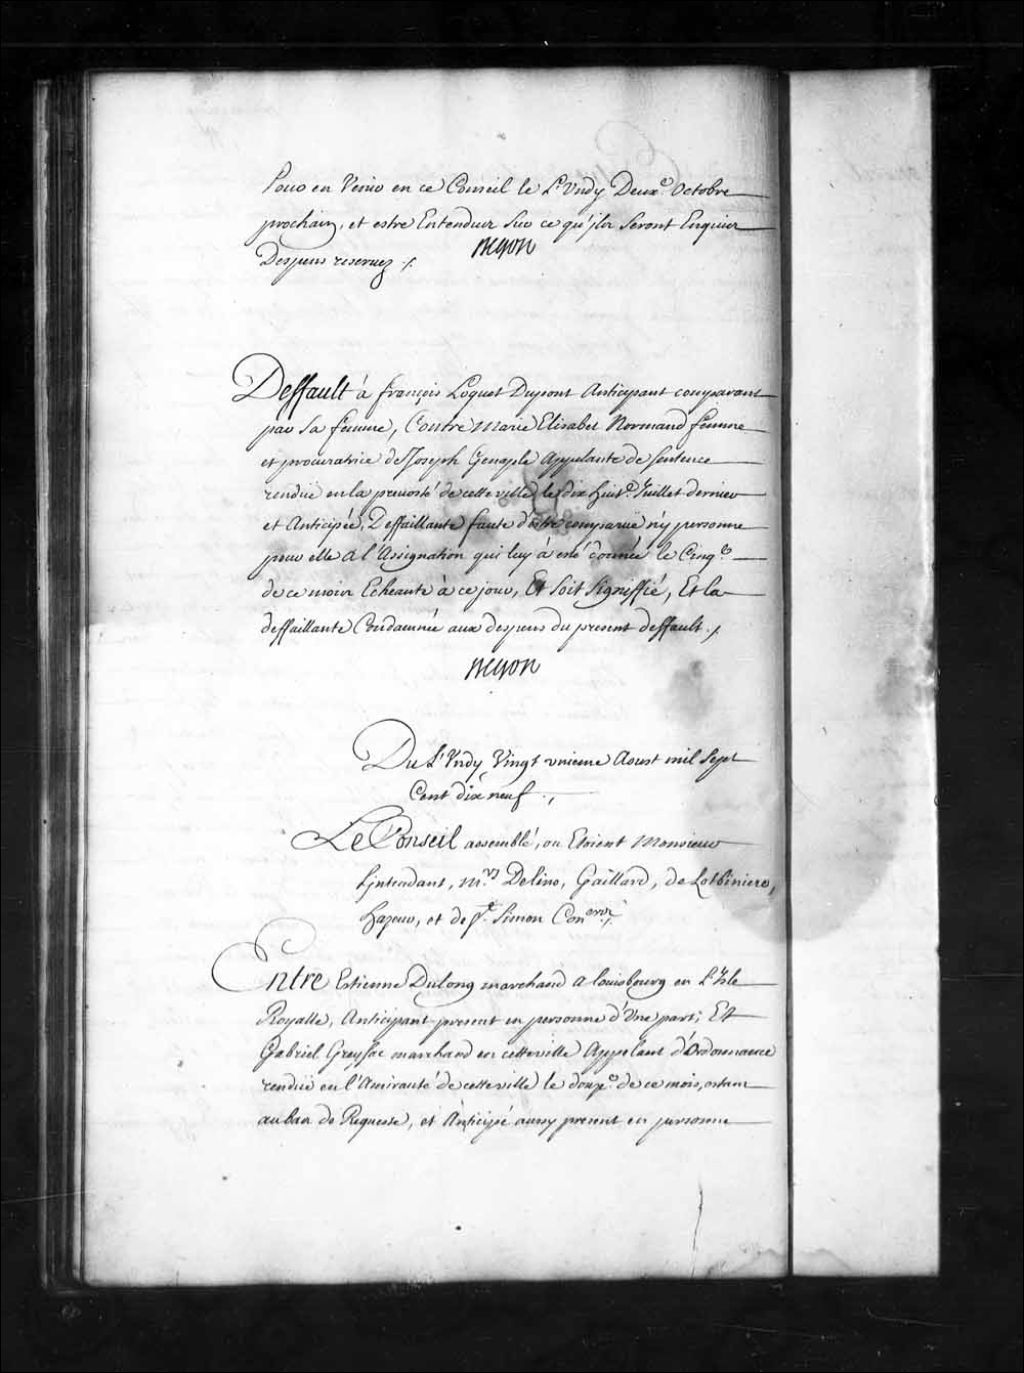 Pour en Venir en ce Conseil le L'Undy Deuxe. Octobre
prochain, et estre Entendues Sur ce qu'jls Seront Enquises
Begon
Despens reservez ./.
Deffault à françois Loquet Dupont Anticipant comparant
par Sa femme, Contre Marie Elisabet Normand femme
et procuratrice de Joseph Genaple Appelante de Sentence
rendüe en la prevosté de cette ville le dix huite. Juillet dernier
et Anticipée, Deffaillante faute d'estre comparüe n'y personne
pour elle A l'Assignation qui luy à esté donnée le Cinqe.
de ce mois Echeante à ce jour, Et Soit Signiffié, Et la
deffaillante Condamnée aux despens du present deffault ./.
Begon
Du L'Undy Vingt unieme Aoust mil Sept
Cent dix neuf ./.
Le Conseil assemblé, ou Etoient Monsieur
L'jntendant, Mrs Delino, Gaillard, de Lotbiniere,
hazeur, et de St. Simon Coners ./.
Entre Estienne Dulong marchand a Louisbourg en L'Isle
Royalle, Anticipant present en personne d'Une part; Et
Gabriel Greysac marchand en cette ville Appelant d'Ordonnance
rendüe en l'Amirauté de cette ville le douze. de ce mois, estant
au bas de Requeste, et Anticipé aussy present en personne